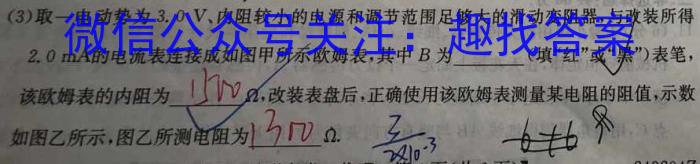 (3)取一电动势为3.0 V、内阻较小的电源和调节范围足够大的滑动变阻器,与改装所得
微信公众号关注：趣找答案
2.0 mA的电流表连接成如图甲所示欧姆表,其中B为______(填“红”或“黑”)表笔,
该欧姆表的内阻为 1500 Ω,改装表盘后,正确使用该欧姆表测量某电阻的阻值,示数
如图乙所示,图乙所测电阻为 1300 Ω. 3/2×10⁻³